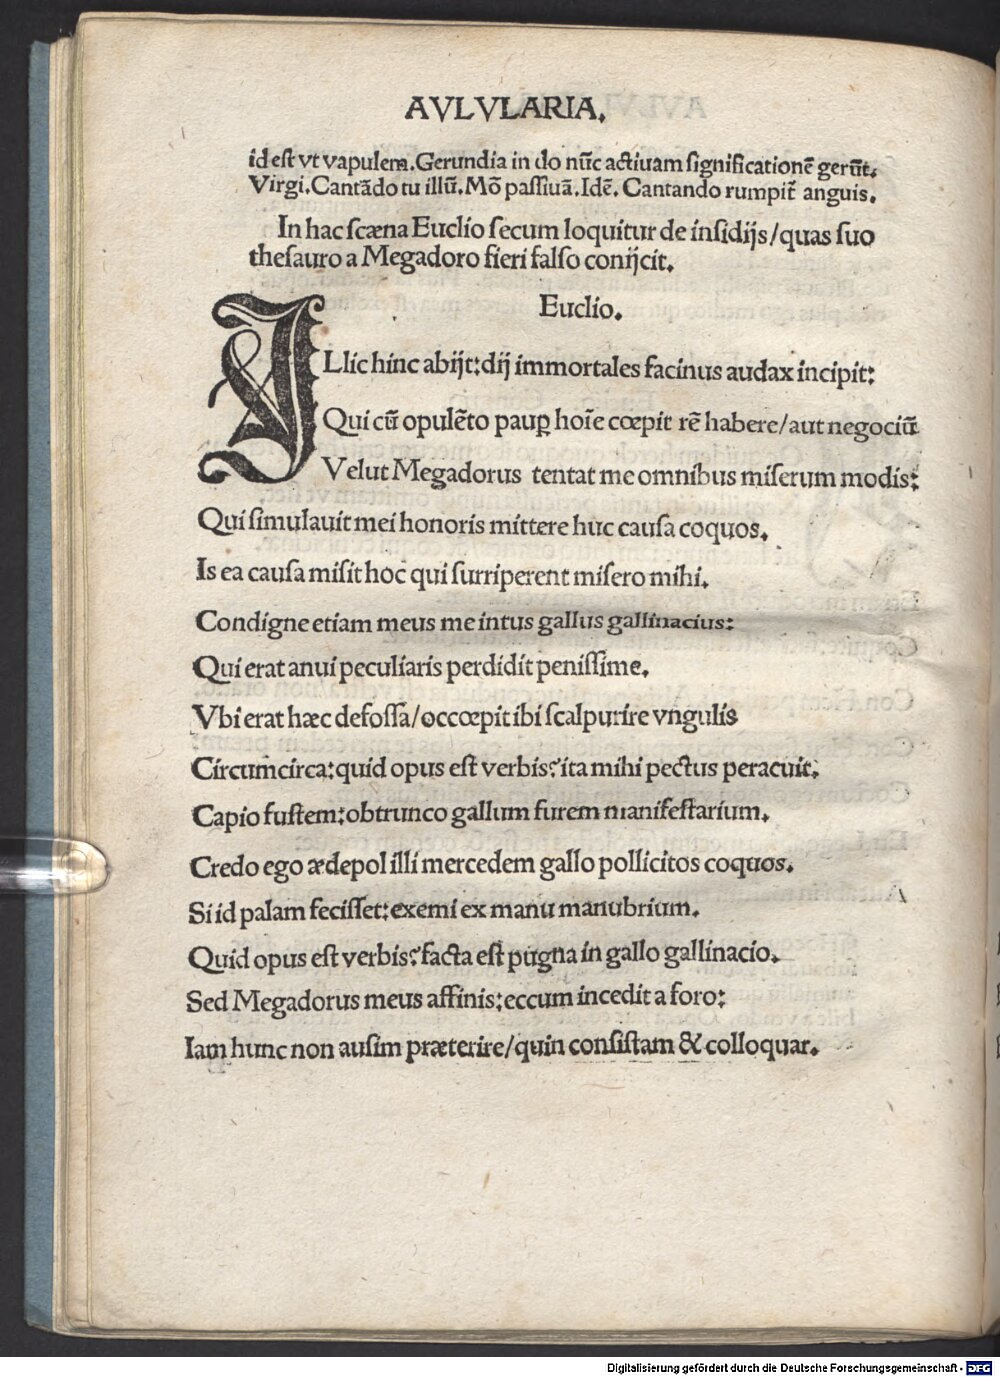 AVLVLARIA.
id est vt vapulem. Gerundia in do nūc actiuam significationē gerūt.
Virgi. Cantādo tu illū. Mō passiuā. Idē. Cantando rumpit̄ anguis.
In hac scæna Euclio secum loquitur de insidijs/quas suo
thesauro a Megadoro fieri falso conijcit.
Euclio.
ILlic hinc abijt: dij immortales facinus audax incipit:
Qui cū opulēto paup̱ hoīe cœpit rē habere/aut negociū
Velut Megadorus tentat me omnibus miserum modis:
Qui simulauit mei honoris mittere huc causa coquos.
Is ea causa misit hoc qui surriperent misero mihi.
Condigne etiam meus me intus gallus gallinacius:
Qui erat anui peculiaris perdidit penissime.
Vbi erat hæc defossa/occœpit ibi scalpurire vngulis
Circumcirca: quid opus est verbis? ita mihi pectus peracuit.
Capio fustem: obtrunco gallum furem manifestarium.
Credo ego ædepol illi mercedem gallo pollicitos coquos.
Si id palam fecisset: exemi ex manu manubrium.
Quid opus est verbis? facta est pugna in gallo gallinacio.
Sed Megadorus meus affinis: eccum incedit a foro:
Iam hunc non ausim præterire/quin consistam & colloquar.
Digitalisierung gefördert durch die Deutsche Forschungsgemeinschaft - DFG